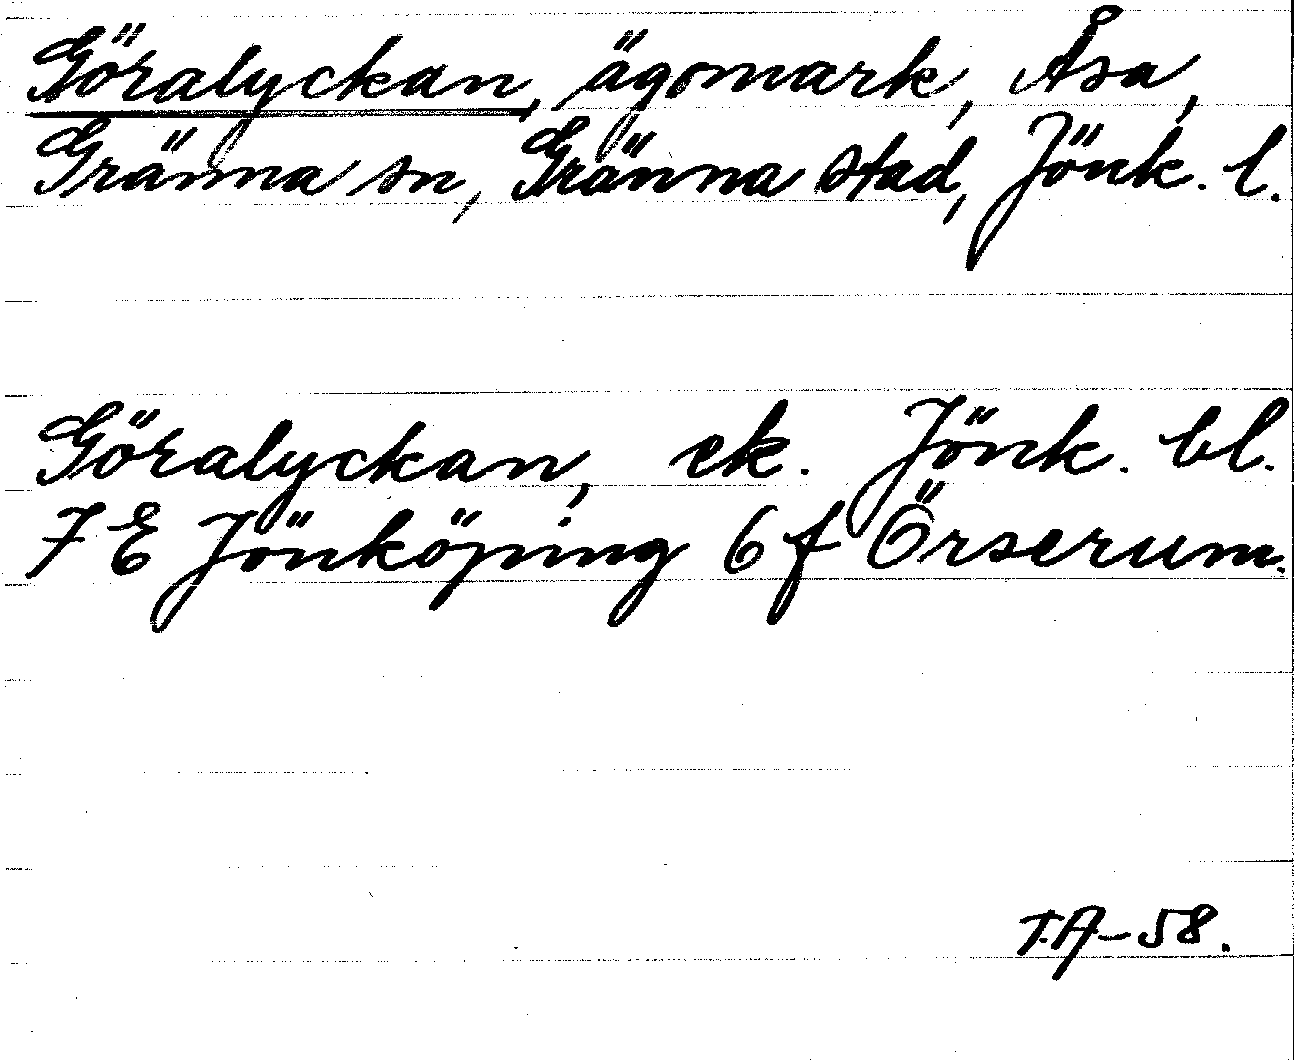 Göralyckan, ägomark, Åsa,
Gränna sn, Gränna stad, Jönk. l.
Göralyckan, ek. Jönk. bl.
7 E Jönköping 6 f Örserum.
T.A-58.